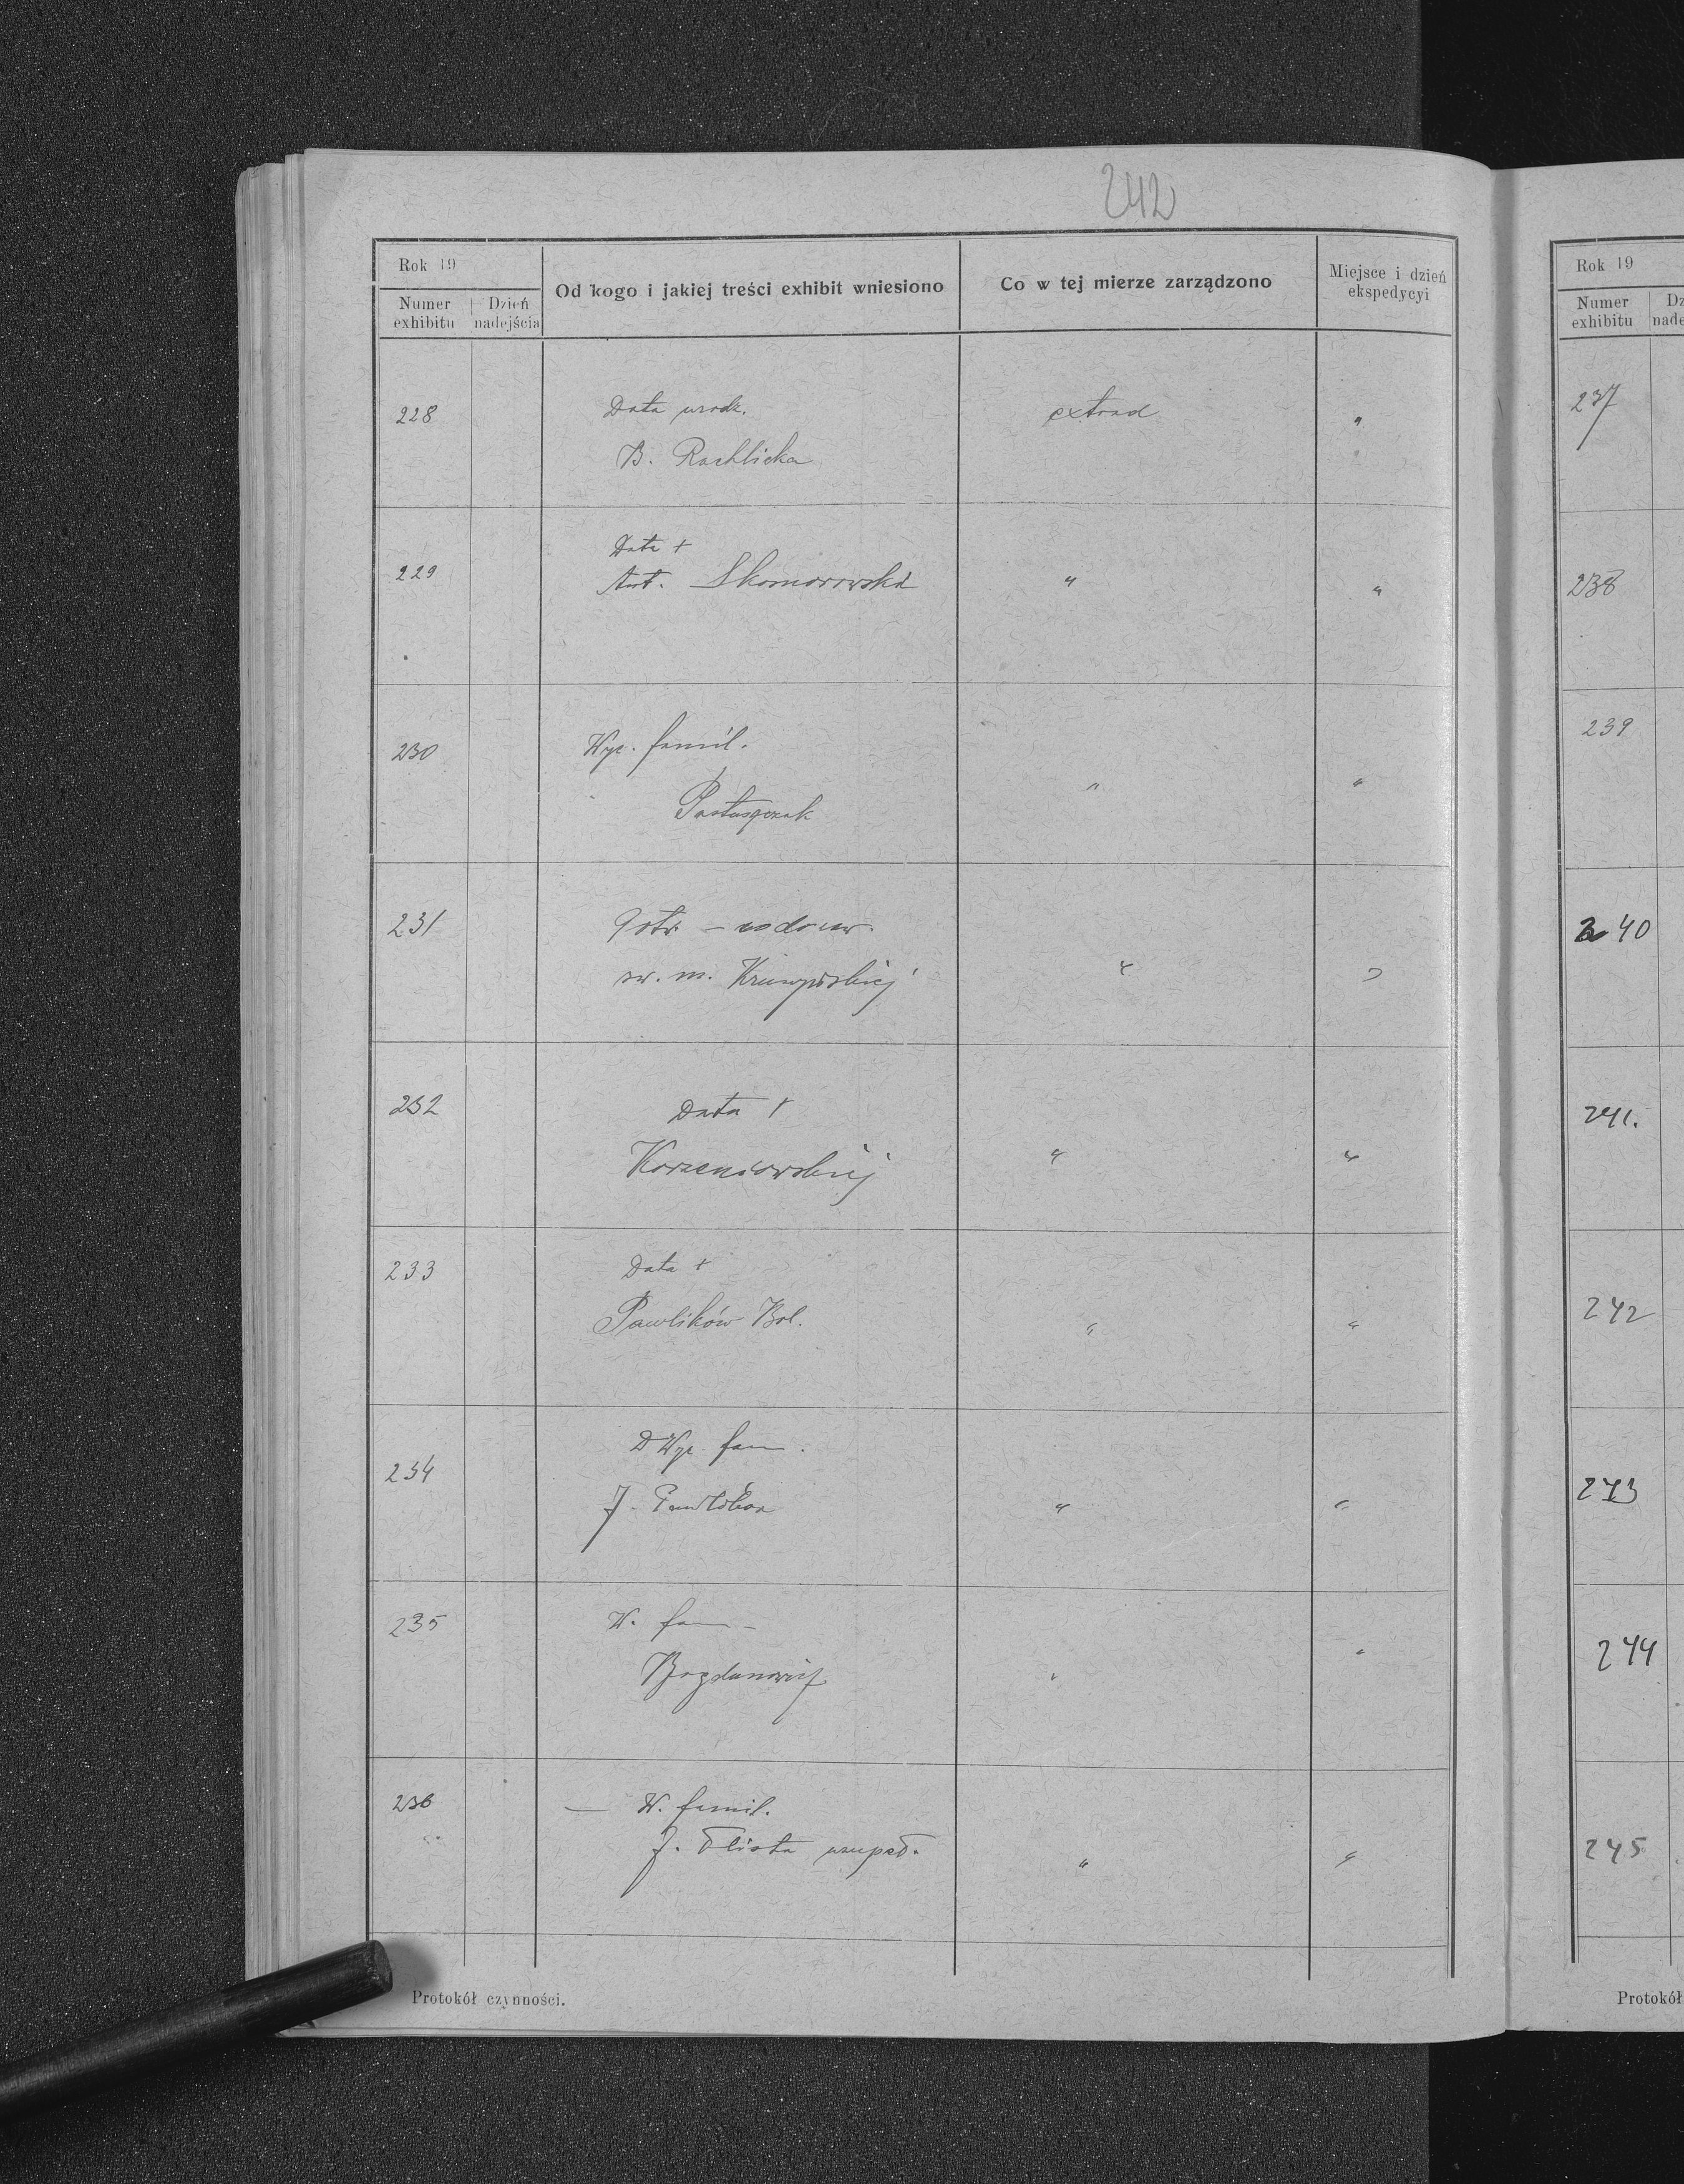 242
Rok 19
Numer exhibitu
Dzień nadejścia
Od kogo i jakiej treści exhibit wniesiono
Co w tej mierze zarządzono
Miejsce i dzień ekspedycyi
228 Data urodz. extrad "
B. Rachlicka
229 Data +
Ant. Skomorowski " "
230 Wyc. famil.
Pastuszczak " "
231
św. m. " "
232 Data +
Korzeniowskiej " "
233 Data +
Pawlików Bol. " "
234 D Wyc. fam.
J. " "
235 W. fam -
Bogdanowicz " "
236 — W. famil.
J. uzupeł. " "
Protokół czynności.
Rok 19
Numer exhibitu
Dz
nade
237
238
239
240
241.
242
243
244
245
Protokół